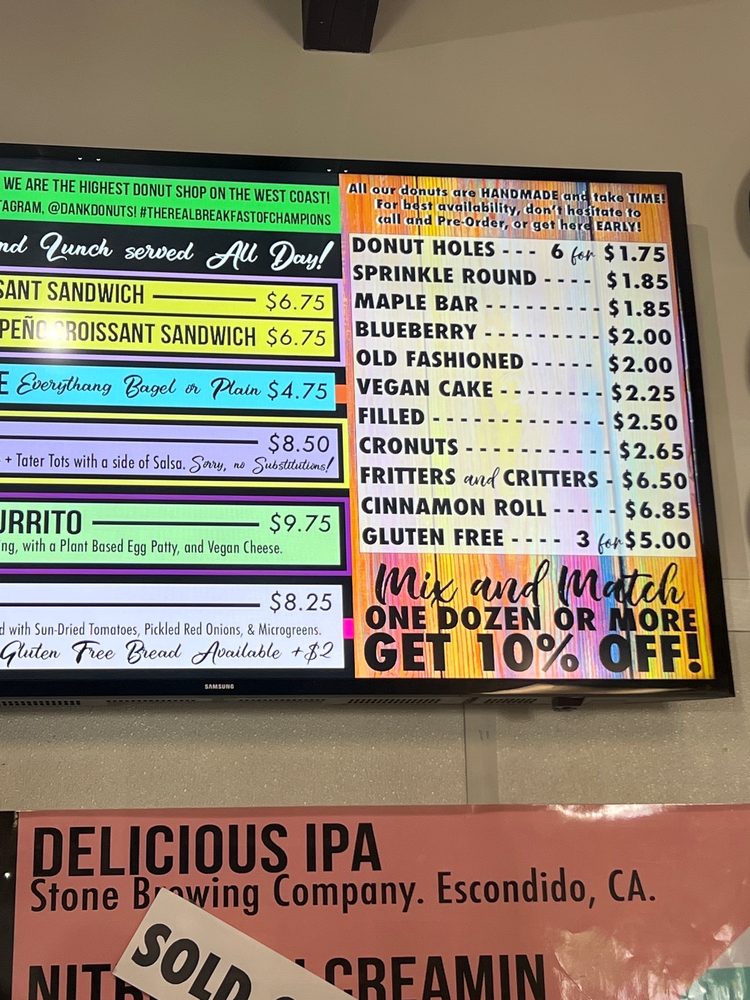 WE ARE THE HIGHEST DONUT SHOP ON THE WEST COAST!
@DANKDONUTS! #THEREALBREAKFASTOFCHAMPIONS
Lunch served All Day!
SANDWICH $6.75
SANDWICH $6.75
Everythang Bagel or Plain $4.75
$8.50
+ Tater Tots with a side of Salsa. Sorry, no Substitutions!
$9.75
with a Plant Based Egg Patty, and Vegan Cheese.
$8.25
with Sun-Dried Tomatoes, Pickled Red Onions, & Microgreens.
Gluten Free Bread Available +$2
All our donuts are HANDMADE and take TIME!
For best availability, don't hesitate to
call and Pre-Order, or get here EARLY!
DONUT HOLES --- 6 for $1.75
SPRINKLE ROUND ---- $1.85
MAPLE BAR --------- $1.85
BLUEBERRY --------- $2.00
OLD FASHIONED ----- $2.00
VEGAN CAKE -------- $2.25
FILLED ------------- $2.50
CRONUTS ----------- $2.65
FRITTERS and CRITTERS - $6.50
CINNAMON ROLL ----- $6.85
GLUTEN FREE ---- 3 for $5.00
Mix and Match
ONE DOZEN OR MORE
GET 10% OFF!
SAMSUNG
DELICIOUS IPA
Stone Brewing Company. Escondido, CA.
SOLD
CREAMIN